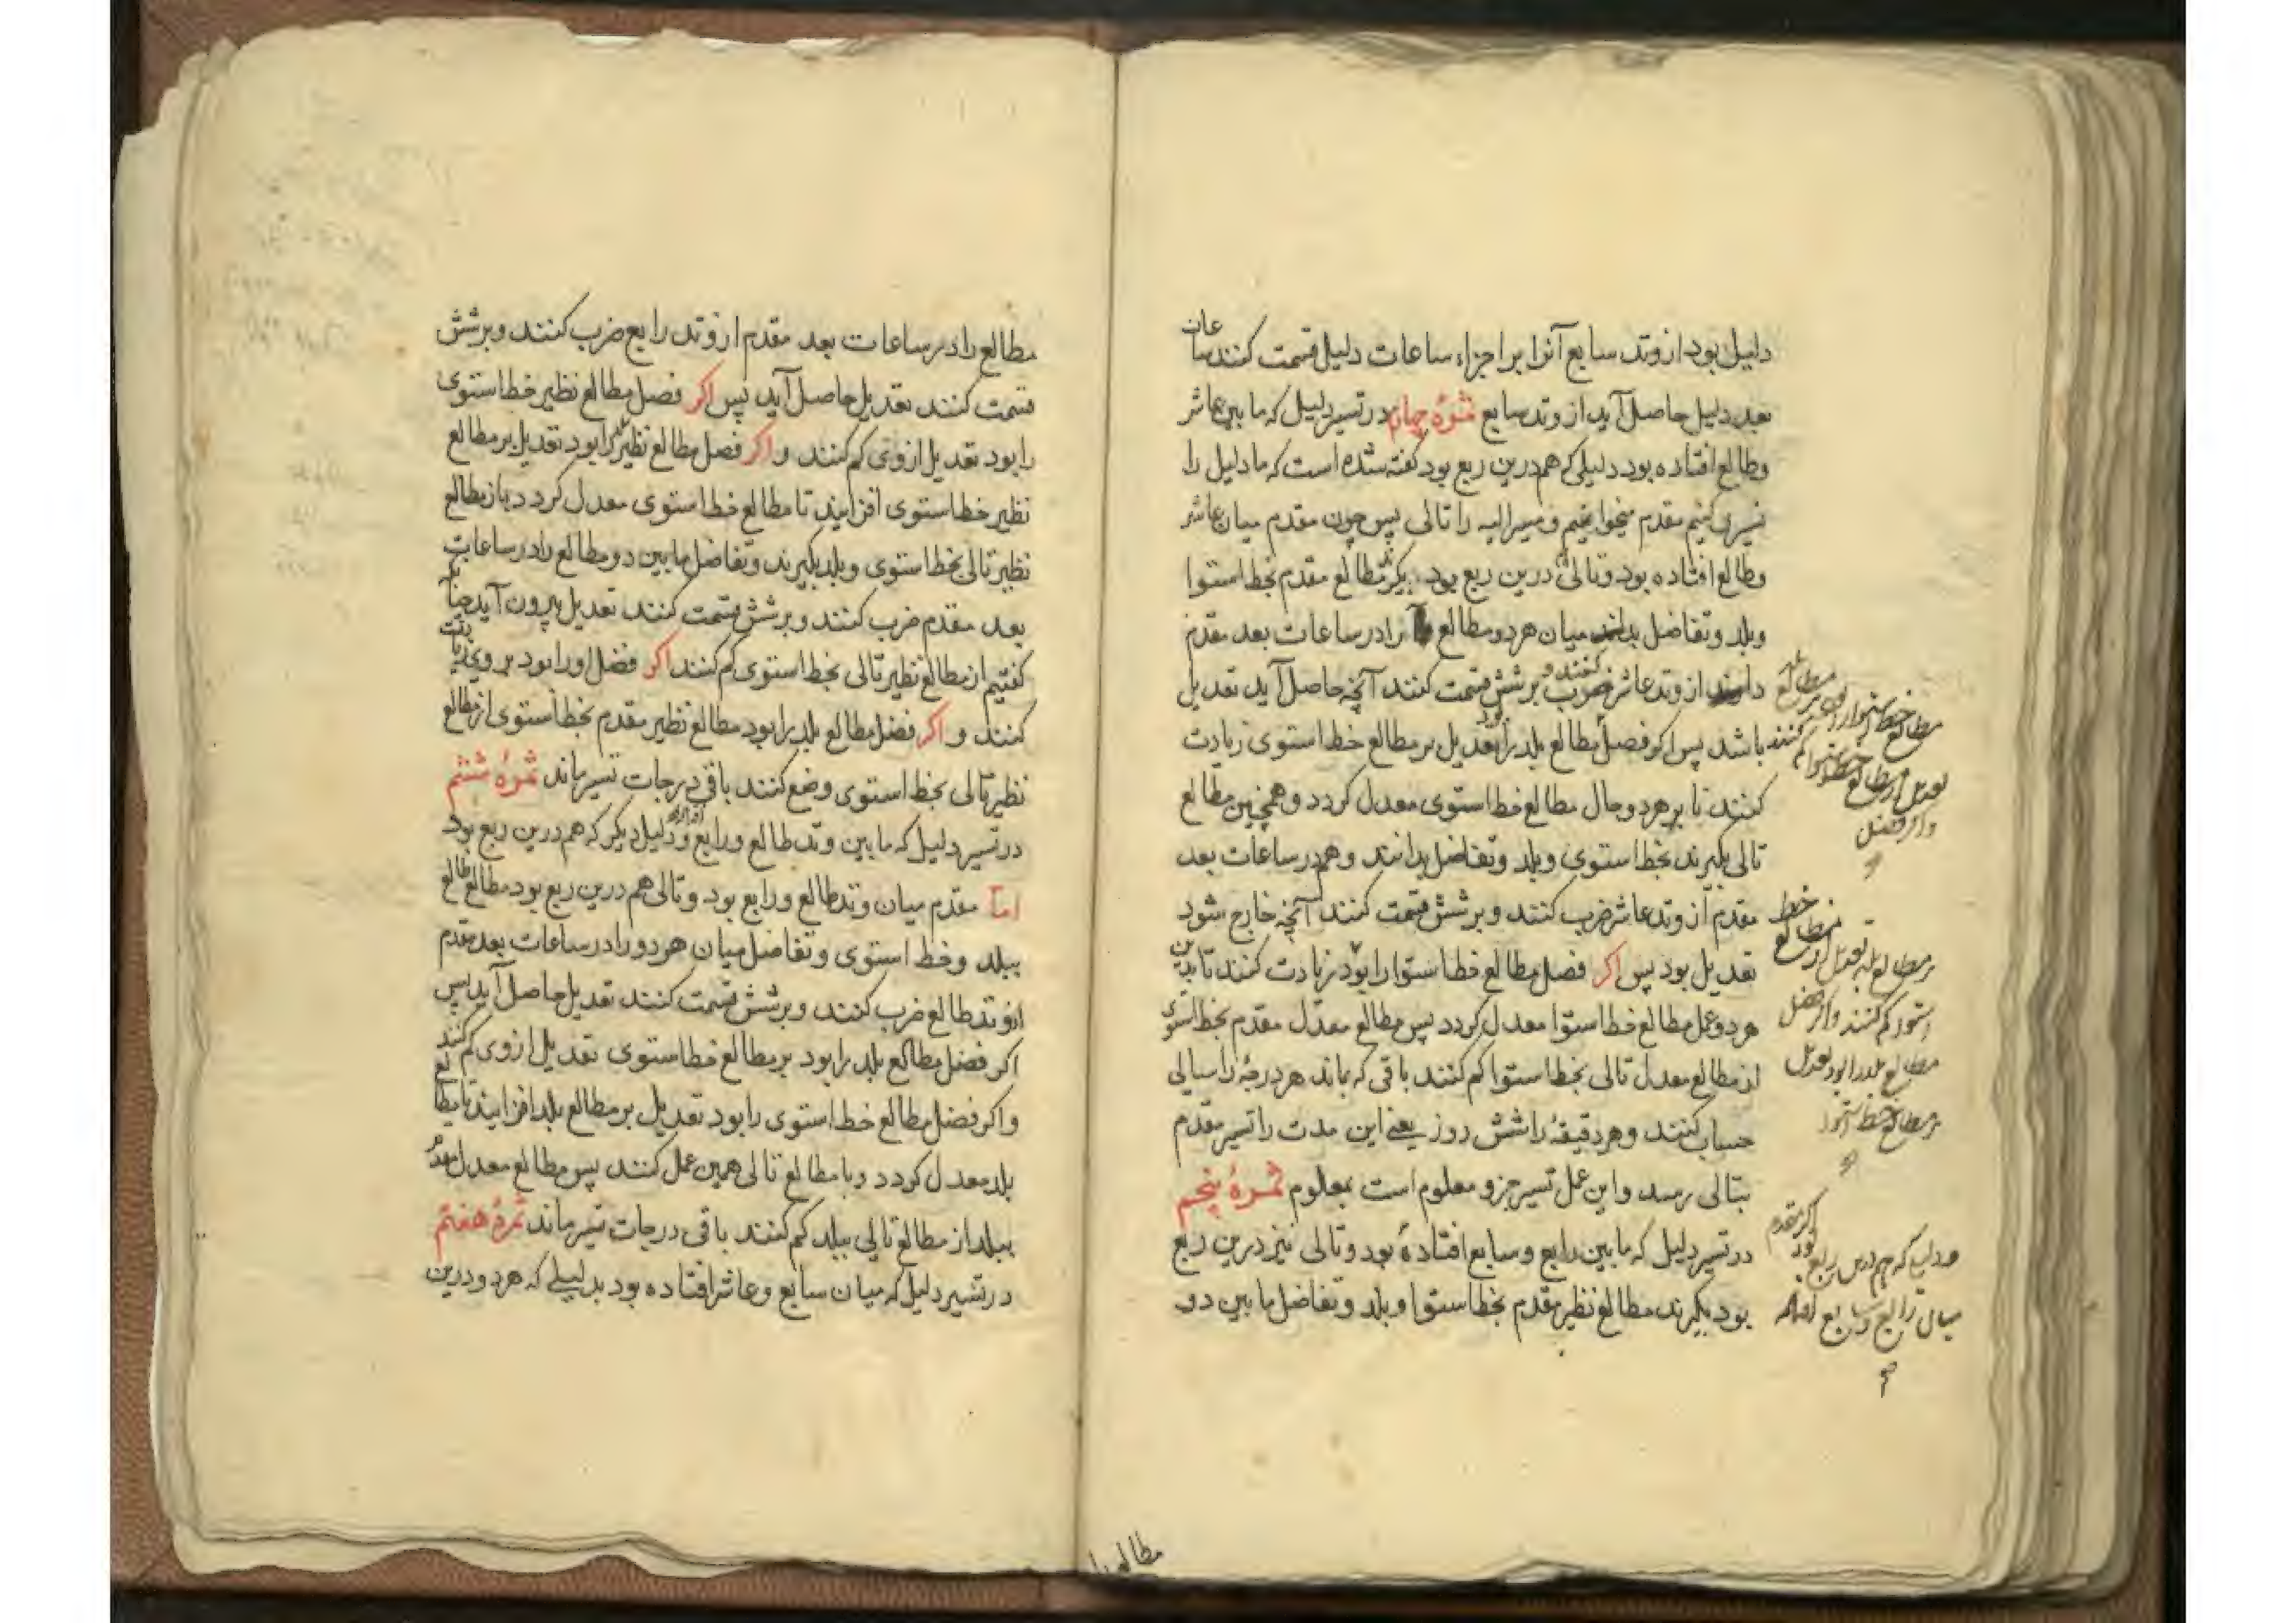 دلیل بود از وتد سابع آنرا بر اجزاء ساعات دلیل قسمت کنند ساعات
بعد دلیل حاصل آید از وتد سابع ثمرهٔ چهارم در تسییر دلیل که ما بین عاشر
وطالع افتاده بود دلیلی که هم درین ربع بود گفته شده است که ما دلیل را
تسییر کنیم مقدم میخوانیم و مسیرالیه را تالی پس چون مقدم میان عاشر
وطالع افتاده بود وتالی درین ربع بود بگیر مطالع مقدم بخط استوا
وبلد وتفاضل میان هر دو مطالع را در ساعات بعد مقدم
از وتد عاشر ضرب کنند و بر شش قسمت کنند آنچه حاصل آید تعدیل
باشد پس اگر فصل مطالع بلد را بود تعدیل بر مطالع خط استوی زیادت
کنند تا بر هر دو حال مطالع خط استوی معدل کردد وهمچنین مطالع
تالی بگیرند بخط استوی وبلد وتفاضل بدانند وهم در ساعات بعد
مقدم از وتد عاشر ضرب کنند وبر شش قسمت کنند آنچه خارج شود
تعدیل بود پس اکر فصل مطالع خط استوا را بود زیادت کنند تا بدین
هر دو عمل مطالع خط استوا معدل کردد پس مطالع معدل مقدم بخط استوی
از مطالع معدل تالی بخط استوا کم کنند باقی که بماند هر درجهٔ را سالی
حساب کنند وهر دقیقهٔ را شش روز یعنی این مدت را تسییر مقدم
بتالی رسد واین عمل تسییر جزو معلوم است بمعلوم ثمرهٔ پنجم
در تسییر دلیل که ما بین رابع وسابع افتاده بود وتالی نیز درین ربع
بود بگیرند مطالع نظیر مقدم بخط استوا وبلد وتفاضل ما بین دو
مطالع خط استوا را بود
تعدیل از مطالع خط استوا کم کنند
واکر فضل
بر مطالع بلد تعدیل از مطالع خط
استوا کم کنند واکر فضل
مطالع بلد را بود تعدیل
بر مطالع خط استوا
اکر مقدم
که هم درین ربع بود
میان رابع وسابع افتاده
مطالع را در ساعات بعد مقدم از وتد رابع ضرب کنند وبر شش
قسمت کنند تعدیل حاصل آید پس اکر فصل مطالع نظیر خط استوی
را بود تعدیل از وی کم کنند واکر فصل مطالع نظیر بلد را بود تعدیل بر مطالع
نظیر خط استوی افزایند تا مطالع خط استوی معدل کردد باز مطالع
نظیر تالی بخط استوی وبلد بگیرند وتفاضل ما بین دو مطالع را در ساعات
بعد مقدم ضرب کنند وبر شش قسمت کنند تعدیل بیرون آید چنانکه
کفتیم از مطالع نظیر تالی بخط استوی کم کنند اکر فضل او را بود بر وی زیادت
کنند واکر فضل مطالع بلد را بود مطالع نظیر مقدم بخط استوی از مطالع
نظیر تالی بخط استوی وضع کنند باقی درجات تسییر ماند ثمرهٔ ششم
در تسییر دلیل که ما بین وتد طالع ورابع افتد ودلیل دیکر که هم درین ربع بود
اما مقدم میان وتد طالع ورابع بود وتالی هم درین ربع بود مطالع طالع
ببلد وخط استوی وتفاضل میان هر دو را در ساعات بعد مقدم
از وتد طالع ضرب کنند وبر شش قسمت کنند تعدیل حاصل آید پس
اکر فضل مطالع بلد را بود بر مطالع خط استوی تعدیل از وی کم کنند
واکر فضل مطالع خط استوی را بود تعدیل بر مطالع بلد افزایند تا مطالع
بلد معدل کردد وبا مطالع تالی همین عمل کنند پس مطالع معدل مقدم
ببلد از مطالع تالی ببلد کم کنند باقی درجات تسییر ماند ثمرهٔ هفتم
در تسییر دلیل که میان سابع وعاشر افتاده بود بدلیلی که هر دو درین
مطالع را